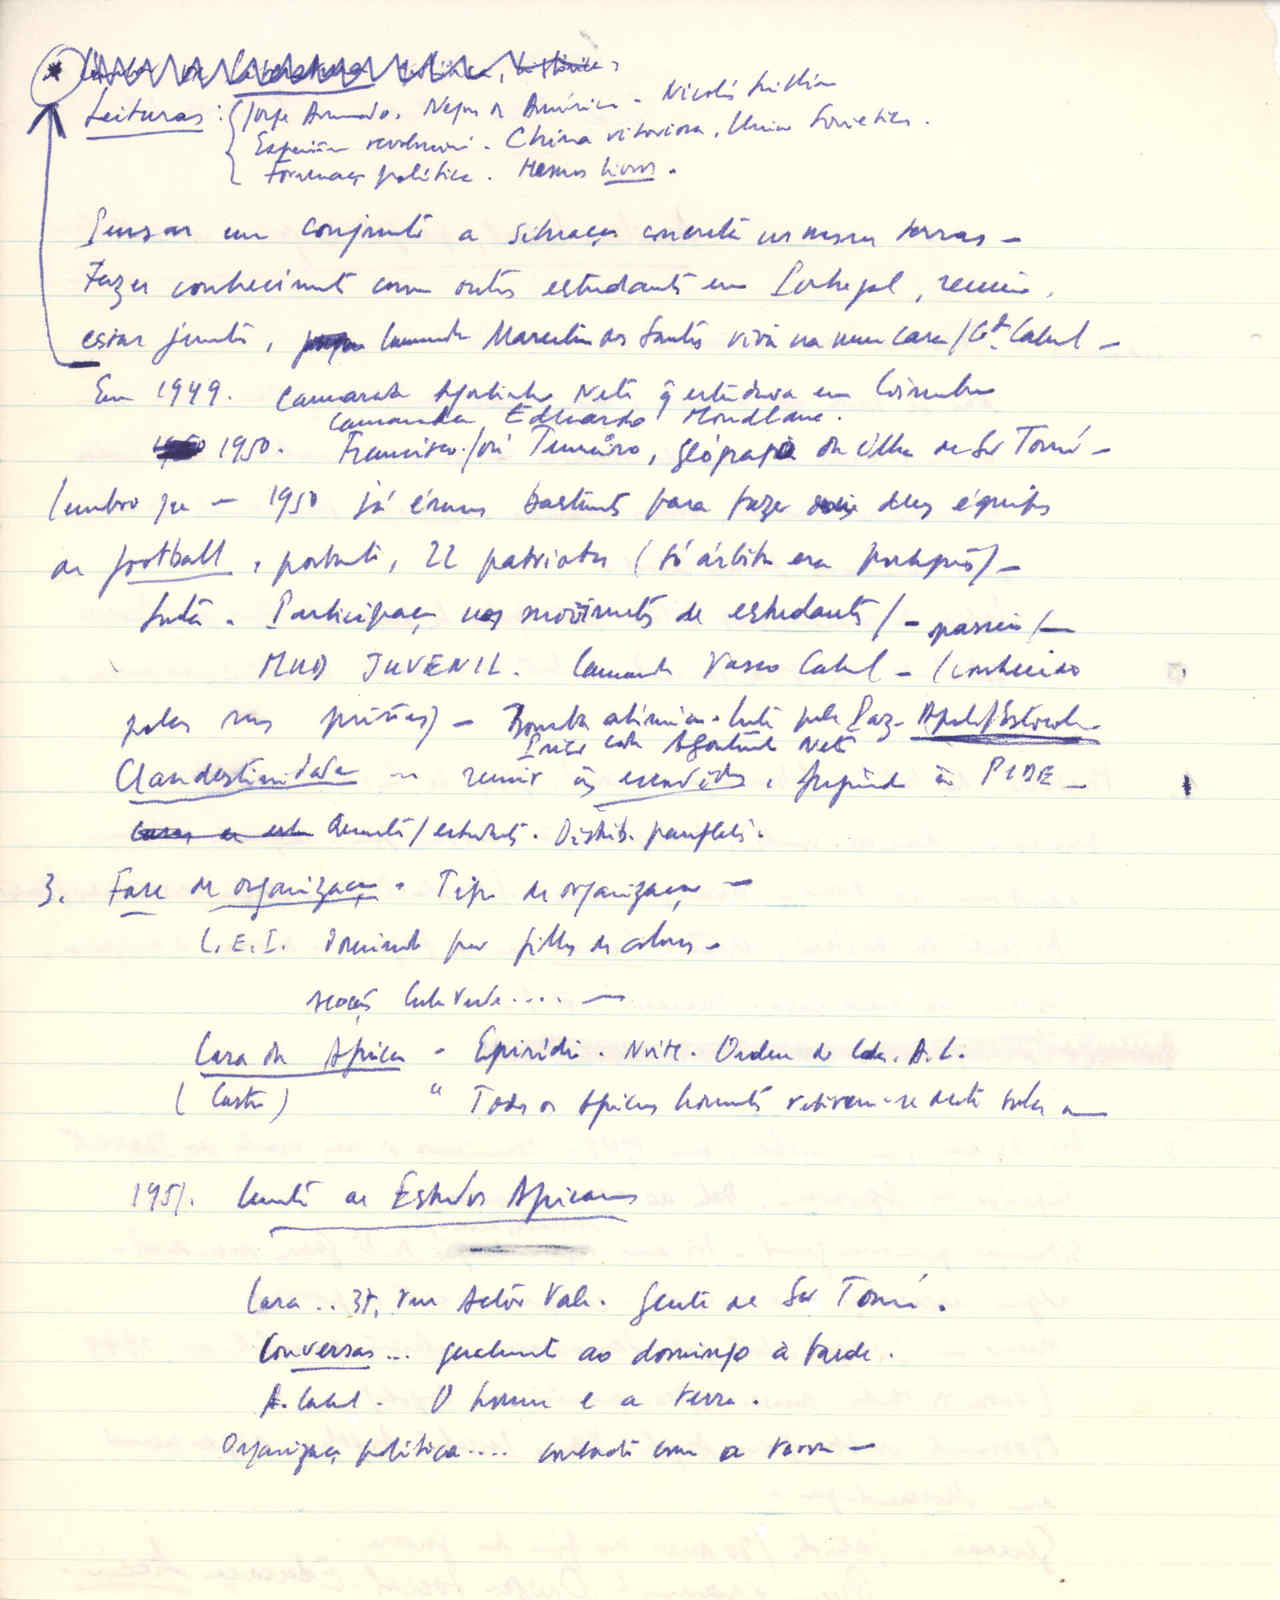 Leituras: Jorge Amado, Negros de América - Nicolás Guillén
Experiên revolucion. China vitoriosa, União Soviética.
Formaç política. Mesmos livros.
Pensar em conjunto a situaçao concreta nossas terras -
Fazer conheciment com outros estudants em Portugal, reunir,
estar juntos, Camarada Marcelino dos Santos vivia na mesma casa / Cabral -
Em 1949. Camarada Agostinho Neto q estudava em Coimbra
camarada Eduardo Mondlane.
1950. Francisco José Tenreiro, geógrafo da ilha de São Tomé -
Lembro que - 1950 já éramos bastants para fazer duas équipes
de football, portanto, 22 patriotas (só árbitro era português) -
Luta. Participaç nos moviments de estudants / - passeio / -
MUD JUVENIL. Camarada Vasco Cabral - (conhecido
pelas suas prisões) - Bomba atómica. Luta pela Paz. Apelo/Estocolmo
Agostinho Neto
Clandestinidade - reunir às escondidas, fugindo à PIDE -
/ estudants. Distrib. panfletos.
3. Fase de organizaçao. Tipo de organizaçao -
C.E.I. Dominado por filhos de colonos -
secção Cabo Verde.... -
Casa da África - Episódio. Noite. Ordem do A.C.
(Castro) " Todos os africanos retirem-se desta sala -
1951. Centro de Estudos Africanos
Casa .. 37, rua Actor Vale. Gente de São Tomé.
Conversas... geralment ao domingo à tarde.
A. Cabral. O homem e a terra.
Organizaç política.... contacto com a terra -